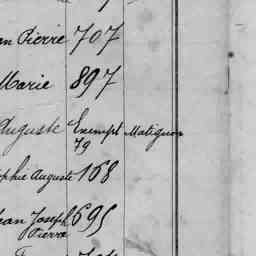 an Pierre 707
Marie 897
Auguste Exempt Matignon
79
phie Auguste 168
ean Joseph 695
Pierre